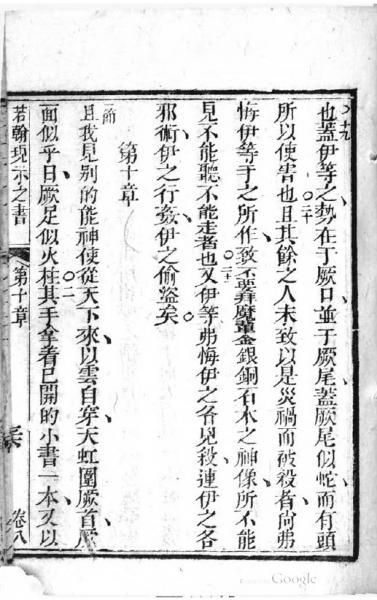 〇十九
也蓋伊等之勢在于厥口並于厥尾蓋厥尾似蛇而有頭
所以使害也〇二十且其餘之人未致以是災禍而被殺者尚弗
悔伊等手之所作致不要拜魔輩金銀銅石木之神像所不能
見不能聽不能走者也〇二十一又伊等弗悔伊之各兇殺連伊之各
邪術伊之行姦伊之偷盜矣
第十章
一節
且我見別的能神使從天下來以雲自穿天虹圍厥首厥
面似乎日厥足似火柱〇二其手拿着已開的小書一本又以
若翰現示之書
第十章
卷八
Google